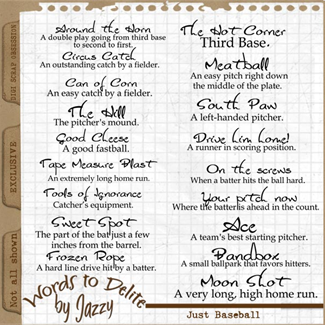 DIGI SCRAP OBSESSION
EXCLUSIVE
Not all shown
Around the Horn
A double play going from third base
to second to first.
Circus Catch
An outstanding catch by a fielder.
Can of Corn
An easy catch by a fielder.
The Hill
The pitcher's mound.
Good Cheese
A good fastball.
Tape Measure Blast
An extremely long home run.
Tools of Ignorance
Catcher's equipment.
Sweet Spot
The part of the bat just a few
inches from the barrel.
Frozen Rope
A hard line drive hit by a batter.
Words to Delite
by Jazzy
The Hot Corner
Third Base.
Meatball
An easy pitch right down
the middle of the plate.
South Paw
A left-handed pitcher.
Drive him home!
A runner in scoring position.
On the screws
When a batter hits the ball hard.
Your pitch now
Where the batter is ahead in the count.
Ace
A team's best starting pitcher.
Bandbox
A small ballpark that favors hitters.
Moon Shot
A very long, high home run.
Just Baseball